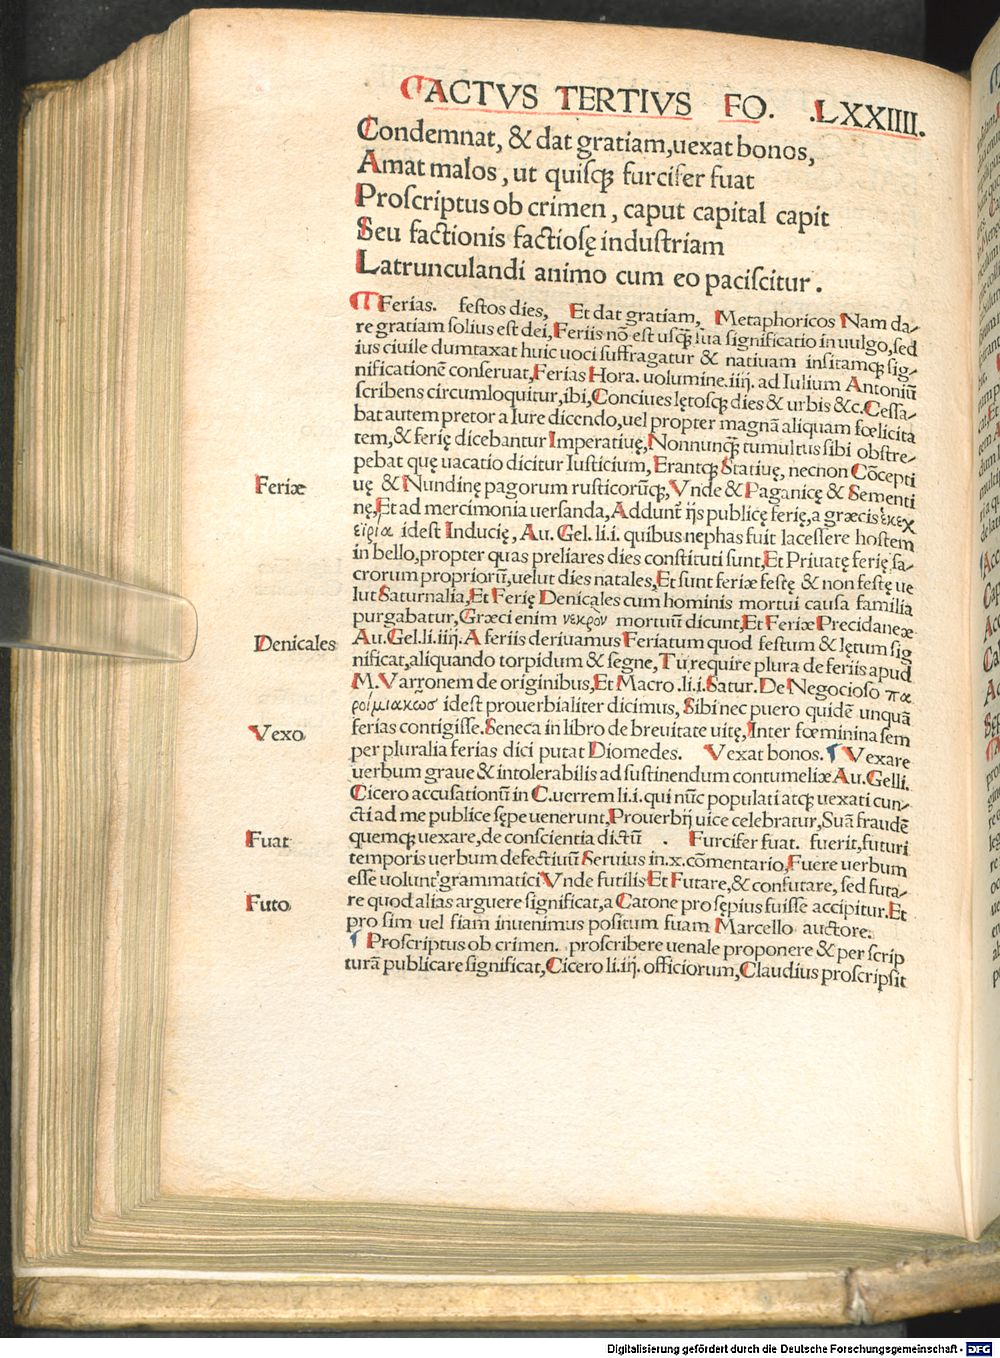 ACTVS TERTIVS FO. .LXXIIII.
Condemnat, & dat gratiam, uexat bonos,
Amat malos, ut quisqꝫ furcifer fuat
Proſcriptus ob crimen, caput capital capit
Seu factionis factioſę induſtriam
Latrunculandi animo cum eo paciſcitur.
Ferias. feſtos dies, Et dat gratiam, Metaphoricos Nam da⸗
re gratiam ſolius eſt dei, Feriis nō eſt uſqꝫ ſua ſignificatio in uulgo, ſed
ius ciuile dumtaxat huic uoci ſuffragatur & natiuam inſitamqꝫ ſig⸗
nificationē conſeruat, Ferias Hora. uolumine. iiij. ad Iulium Antoniū
ſcribens circumloquitur, ibi, Conciues lętoſqꝫ dies & urbis &c. Ceſſa⸗
bat autem pretor a Iure dicendo, uel propter magnā aliquam fœlicita
tem, & ferię dicebantur Imperatiuę, Nonnunq̄ tumultus ſibi obſtre⸗
pebat quę uacatio dicitur Iuſticium, Erantqꝫ Statiuę, necnon Cōcepti
Feriæ
uę & Nundinę pagorum ruſticorūqꝫ, Vnde & Paganicę & Sementi
nę, Et ad mercimonia uerſanda, Addunt̄ ijs publicę ferię, a græcis ἐκεχ
ειρία ideſt Inducię, Au. Gel. li. i. quibus nephas fuit laceſſere hoſtem
in bello, propter quas preliares dies conſtituti ſunt, Et Priuatę ferię, ſa⸗
crorum propriorū, uelut dies natales, Et ſunt feriæ feſtę & non feſtę ue
lut Saturnalia, Et Ferię Denicales cum hominis mortui cauſa familia
purgabatur, Græci enim νεκρὸν mortuū dicunt, Et Feriæ Precidaneæ
Denicales
Au. Gel. li. iiij. A feriis deriuamus Feriatum quod feſtum & lętum ſig
nificat, aliquando torpidum & ſegne, Tu require plura de feriis apud
M. Varronem de originibus, Et Macro .li. i. Satur. De Negocioſo πα
ροιμιακῶσ ideſt prouerbialiter dicimus, Sibi nec puero quidē unquā
Vexo
ferias contigiſſe. Seneca in libro de breuitate uitę, Inter fœminina ſem
per pluralia ferias dici putat Diomedes. Vexat bonos. ¶ Vexare
uerbum graue & intolerabilis ad ſuſtinendum contumeliæ Au. Gelli.
Cicero accuſationū in C. uerrem li. i. qui nūc populati atqꝫ uexati cun⸗
cti ad me publice ſępe uenerunt, Prouerbij uice celebratur, Suā fraudē
Fuat
quemqꝫ uexare, de conſcientia dictū . Furcifer fuat. fuerit, futuri
temporis uerbum defectiuū Seruius in. x. cōmentario, Fuere uerbum
eſſe uolunt grammatici Vnde futilis Et Futare, & confutare, ſed futa⸗
Futo
re quod alias arguere ſignificat, a Catone pro ſępius fuiſſe accipitur. Et
pro ſim uel fiam inuenimus poſitum fuam Marcello auctore.
¶ Proſcriptus ob crimen. proſcribere uenale proponere & per ſcrip
turā publicare ſignificat, Cicero li. iij. officiorum, Claudius proſcripſit
Digitalisierung gefördert durch die Deutsche Forschungsgemeinschaft - DFG